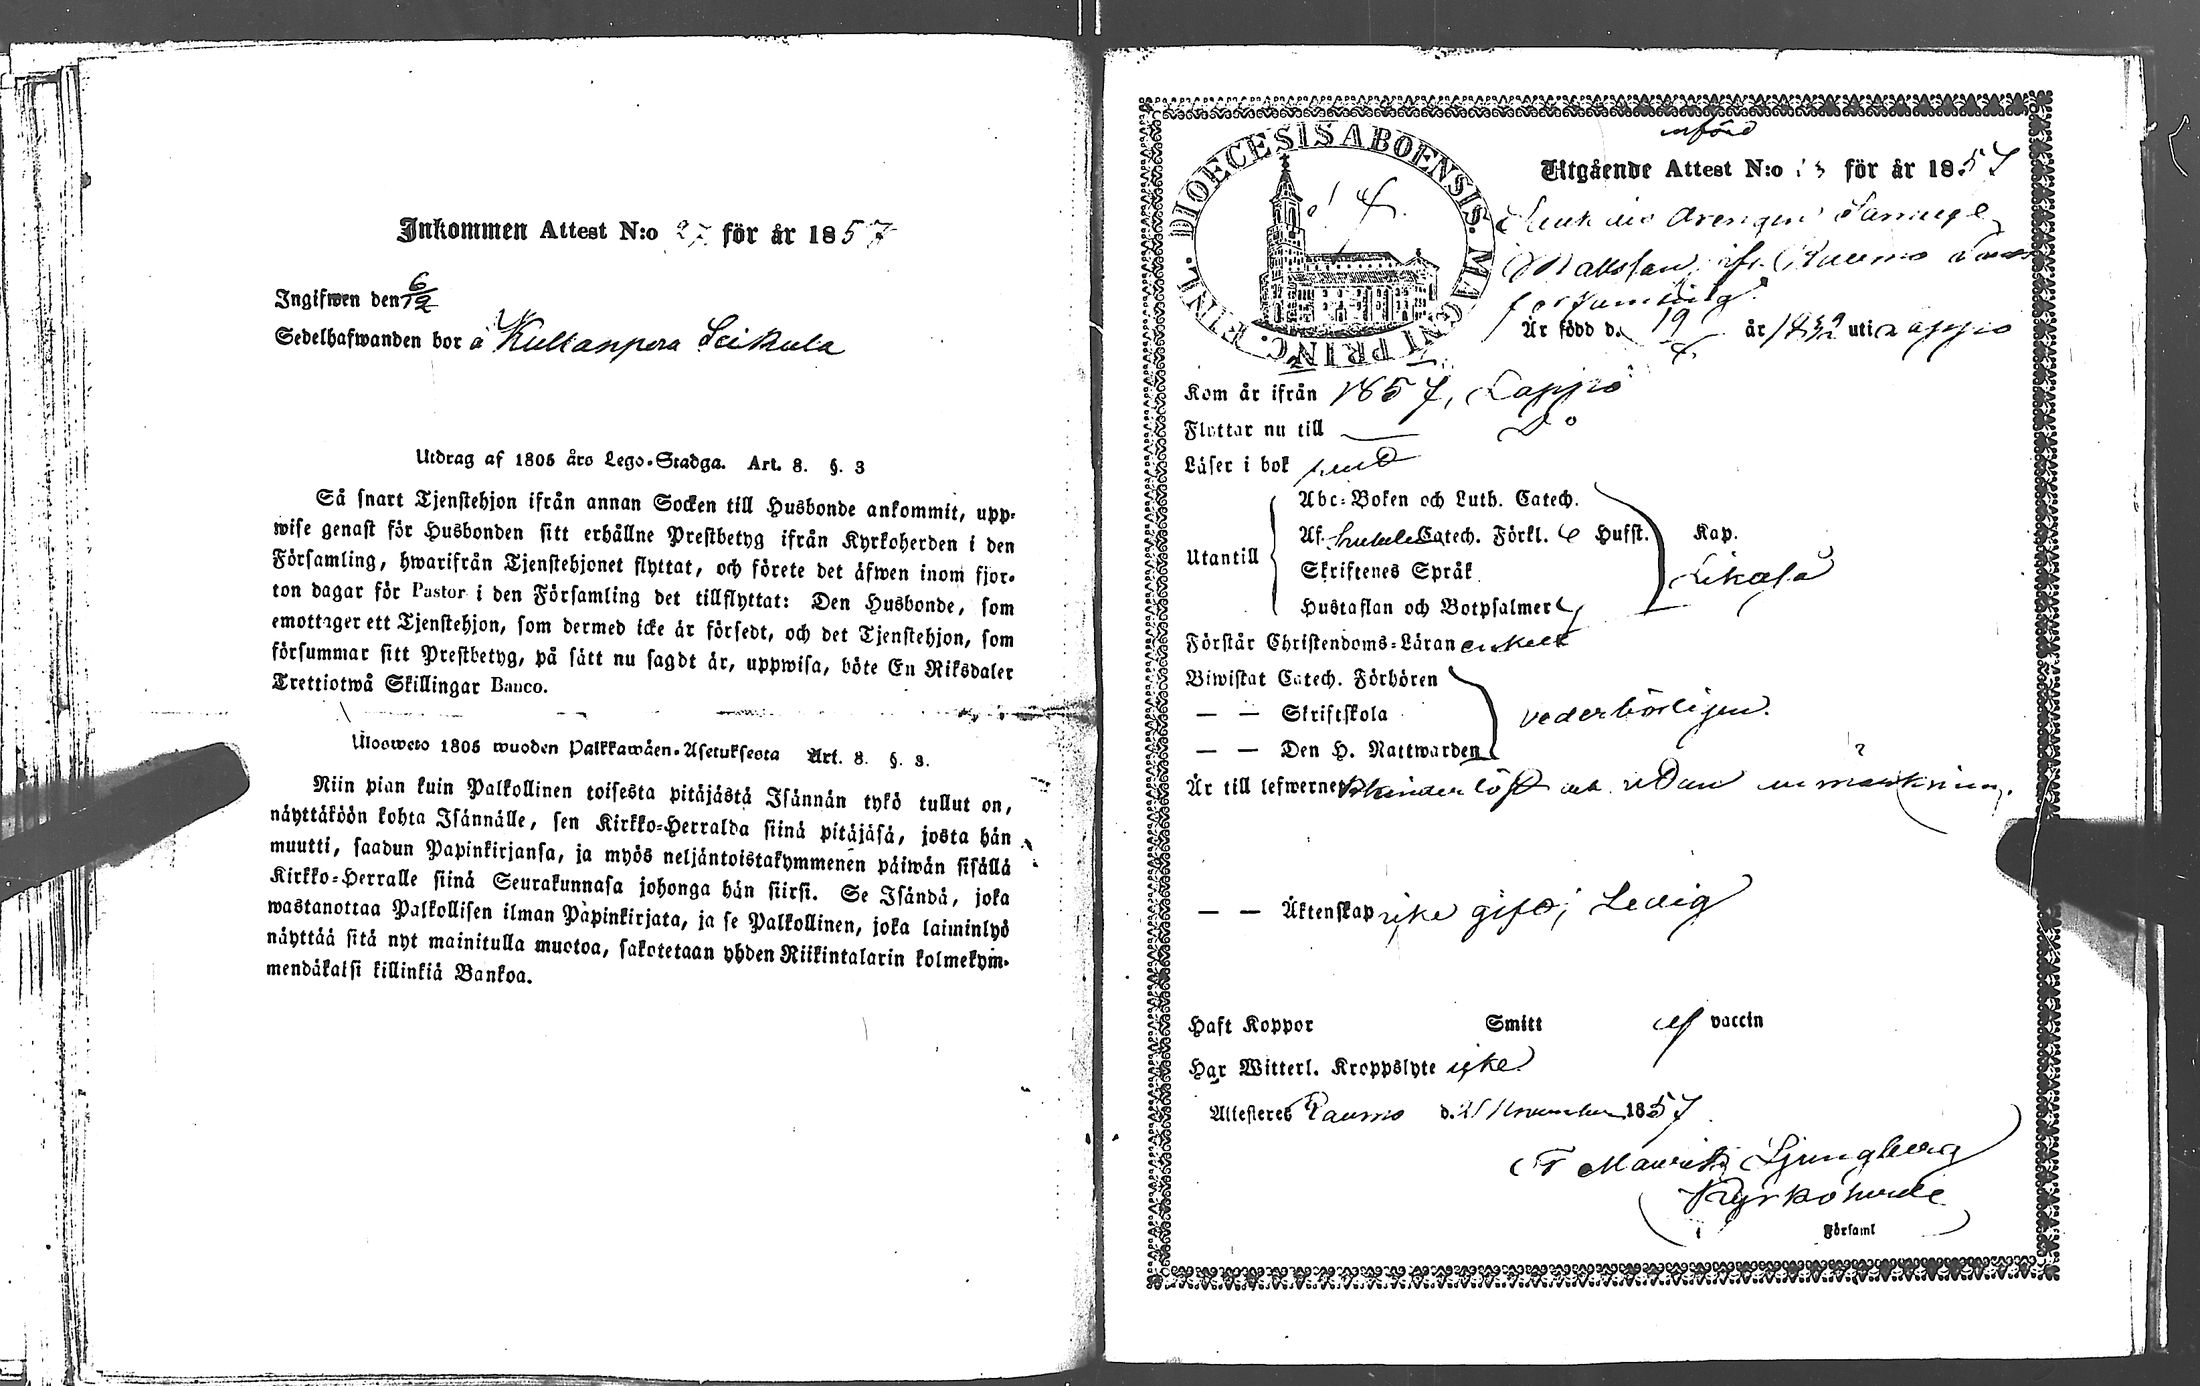 Inkommen Attest N:o 27 för år 1857
Ingifwen den 6/12
Sedelhafwanden bor å Kullanpera Seikula
Utdrag af 1805 års Lego-Stadga. Art. 8. §. 3
Så snart Tjenstehjon ifrån annan Socken till Husbonde ankommit, upp-
wise genast för Husbonden sitt erhållne Prestbetyg ifrån Kyrkoherden i den
Församling, hwarifrån Tjenstehjonet flyttat, och förete det äfwen inom fjor-
ton dagar för Pastor i den Församling det tillflyttat: Den Husbonde, som
emottager ett Tjenstehjon, som dermed icke är försedt, och det Tjenstehjon, som
försummar sitt Prestbetyg, på sätt nu sagdt är, uppwisa, böte En Riksdaler
Trettiotwå Skillingar Banco.
Ulosweto 1805 wuoden Palkkawäen-Asetuksesta Art. 8. §. 3.
Niin pian kuin Palkollinen toisesta pitäjästä Isännän tykö tullut on,
näyttäköön kohta Isännälle, sen Kirkko-Herralda siinä pitäjäsä, josta hän
muutti, saadun Papinkirjansa, ja myös neljäntoistakymmenen päiwän sisällä
Kirkko-Herralle siinä Seurakunnasa johonga hän siirsi. Se Isändä, joka
wastanottaa Palkollisen ilman Papinkirjata, ja se Palkollinen, joka laiminlyö
näyttää sitä nyt mainitulla muotoa, sakotetaan yhden Riikintalarin kolmekym-
mendäkaksi killinkiä Bankoa.
DIOECESIS ABOENSIS. MAGNI PRINC. FINL.
införd
Utgående Attest N:o för år 1857
drengen
Mattsson ifr. Raumo
församling
Är född d. 19 år 1832 uti Lappo
Kom år ifrån 1857, Lappo
Flyttar nu till Do
Läser i bok
Utantill
Abc-Boken och Luth. Catech.
Af Catech. Förkl. Husst. Kap.
Skriftenes Språk
Likaså
Hustaflan och Botpsalmer
Förstår Christendoms-Läran enkelt
Biwistat Catech. Förhören
— — Skriftskola vederbörligen.
— — Den H. Nattwarden
Är till lefwernet och utan anmärkning.
— — Äktenskap icke gift; Ledig
Haft Koppor Smitt af vaccin
Har Witterl. Kroppslyte icke
Attesteres Raumo d. 21 November 1857
F Mauritz Ljungberg
Kyrkoherde
i Församl